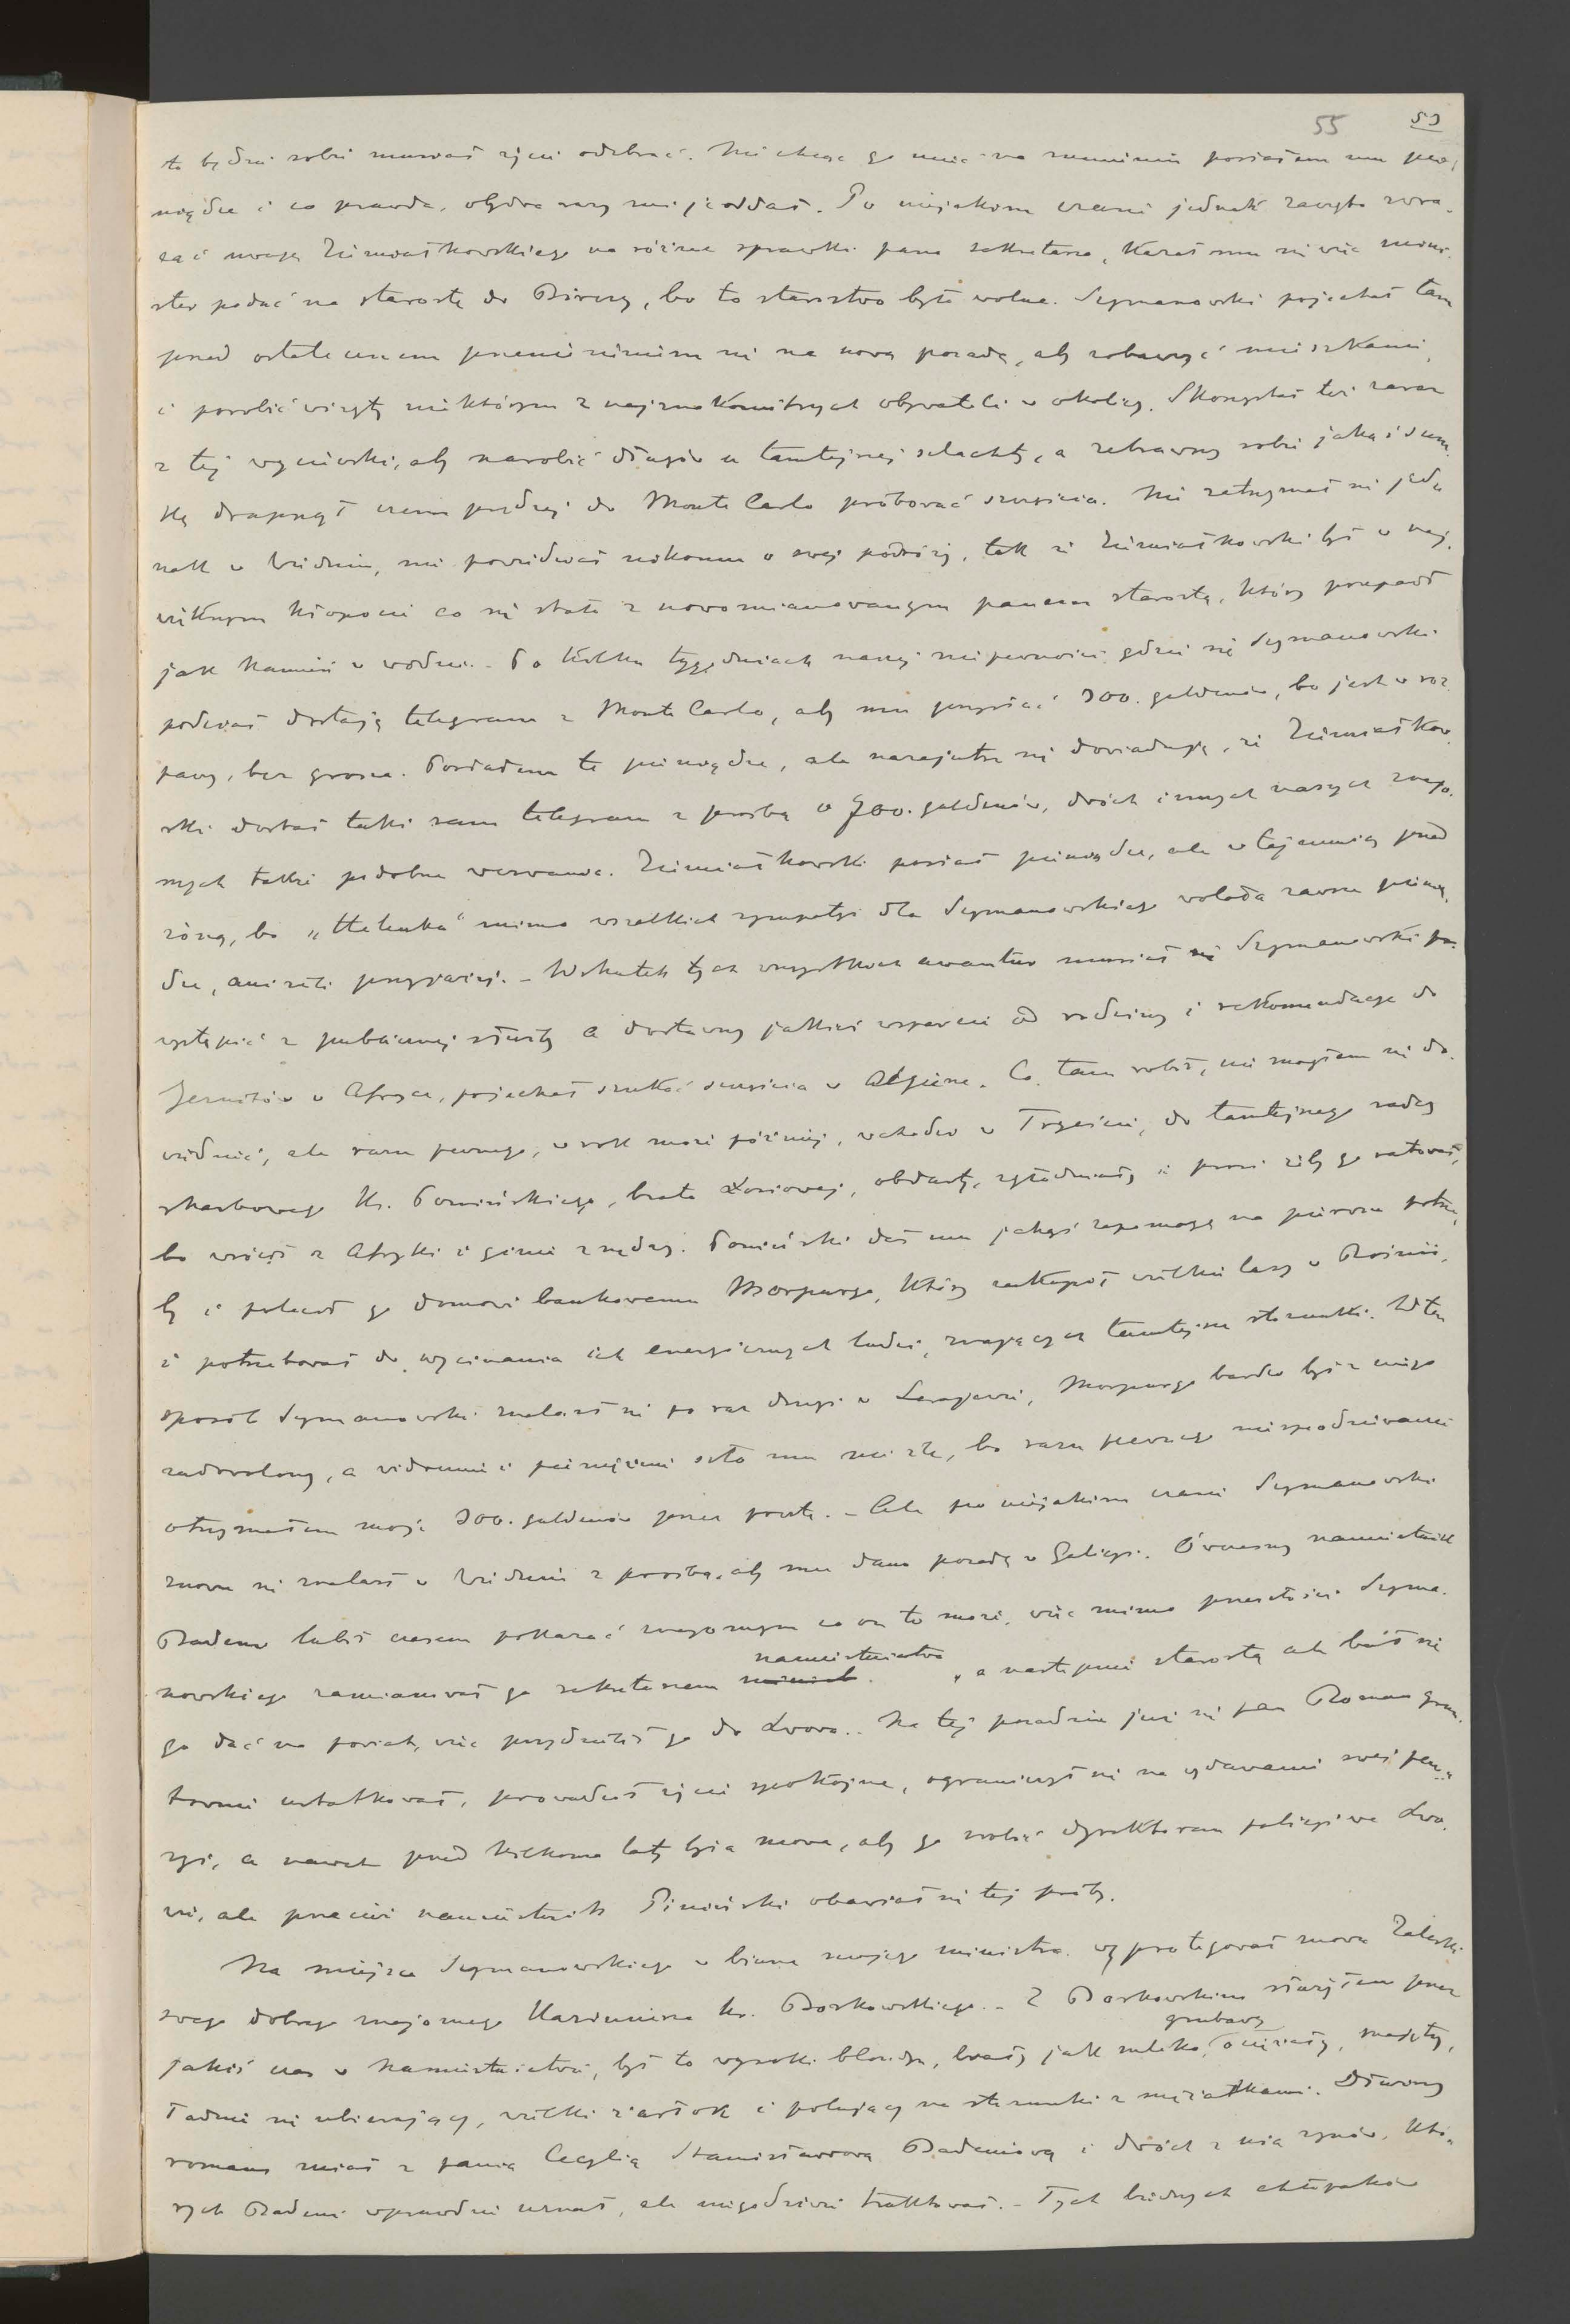 55 59
to będzie sobie musiał życie odebrać. Nie chcąc go mieć na sumieniu posłałem mu pie-
niądze i co prawda, obydwa razy mi je oddał. Po niejakim czasie jednak zaczęto zwra-
cać uwagę Ziemiałkowskiego na różne sprawki pana sekretarza, kazał mu się więc mini-
ster podać na starostę do Birczy, bo to starostwo było wolne. Szymanowski pojechał tam
przed ostatecznem przeniesieniem się na nową posadę, aby zobaczyć mieszkanie
i porobić wizyty niektórym z najznakomitszych obywateli w okolicy. Skorzystał też zaraz
z tej wycieczki, aby narobić długów u tamtejszej szlachty, a zebrawszy sobie jakąś sum-
kę drapnął czem prędzej do Monte Carlo próbować szczęścia. Nie zatrzymał się jed-
nak w Wiedniu, nie powiedział nikomu o swej podróży, tak że Ziemiałkowski był w naj-
większym kłopocie co się stało z nowomianowanym panem starostą, który przepadł
jak kamień w wodzie. - Po kilku tygodniach naszej niepewności gdzie się Szymanowski
podział dostaję telegram z Monte Carlo, aby mu przysłać 300. guldenów, bo jest w roz-
paczy, bez grosza. Posłałem te pieniądze, ale nazajutrz się dowiaduję, że Ziemiałkow-
ski dostał taki sam telegram z prośbą o 700. guldenów, dwóch innych naszych znajo-
mych także podobne wezwania. Ziemiałkowski posłał pieniądze, ale w tajemnicy przed
żoną, bo „Helenka" mimo wszelkich sympatyi dla Szymanowskiego wolała zawsze pienią-
dze, aniżeli przyjaciół. - Wskutek tych wszystkich awantur musiał Szymanowski
wystąpić z publicznej służby a dostawszy jakieś wsparcie od rodziny i rekomendacye do
Jezuitów w Afryce, pojechał szukać szczęścia w Algierze. Co tam robił, nie mogłem się do-
wiedzieć, ale razu pewnego, w rok może później, wchodzi w Tryeście, do tamtejszego radcy
skarbowego Hr. Ponińskiego, brata Łosiowej, obdarty, zgłodniały i prosi żeby go ratował,
bo wrócił z Afryki i ginie z nędzy. Poniński dał mu jakąś zapomogę na pierwsze potrze-
by i polecił go domowi bankowemu Morpurgo, który zakupił wielkie lasy w Bośnii,
i potrzebował do wycinania ich energicznych ludzi, znających tamtejsze stosunki. W ten
sposób Szymanowski znalazł się po raz drugi w Serajewie, Morpurgo bardzo był z niego
zadowolony, a widocznie i pieniężnie szło mu nie źle, bo razu pewnego niespodziewanie
otrzymałem moje 300. guldenów przez pocztę. - Ale po niejakim czasie Szymanowski
znowu się znalazł w Wiedniu z prośbą, aby mu dano posadę w Galicyi. Ówczesny namiestnik
Badeni lubił czasem pokazać znajomym co on to może, więc mimo przeszłości Szyma-
nowskiego zamianował go sekretarzem namiestnictwa, a następnie starostą ale bał się
go dać na powiat, więc przydzielił go do Lwowa. - Na tej posadzie już się pan Roman grun-
townie ustatkował, prowadził życie spokojne, ograniczył się na wydawanie swej pen-
syi, a nawet przed kilkoma laty była mowa, aby go zrobić dyrektorem policyi we Lwo-
wie, ale przecież namiestnik Piniński obawiał się tej próby.
Na miejsce Szymanowskiego w biurze mojego ministra wyprotegował znowu Zaleski
swego dobrego znajomego Kazimierza hr. Borkowskiego. - Z Borkowskim służyłem przez
jakiś czas w Namiestnictwie, był to wysoki blondyn, biały jak mleko, grubawy, ociężały, nadęty,
ładnie się ubierający, wielki żarłok i polujący na stosunki z mężatkami. Dawny
romans miał z panią Cecylią Stanisławową Badeniową i dwóch z nią synów, któ-
rych Badeni wprawdzie uznał, ale niegodziwie traktował. - Tych biednych chłopaków